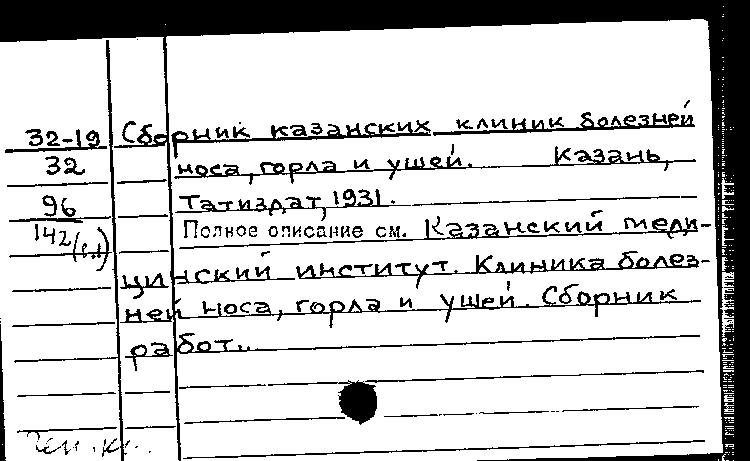 32-19 Сборник казанских клиник болезней
32 носа, горла и ушей. Казань,
96 Татиздат, 1931.
142 Полное описание см. Казанский меди-
цинский институт. Клиника болез-
ней носа, горла и ушей. Сборник
работ..